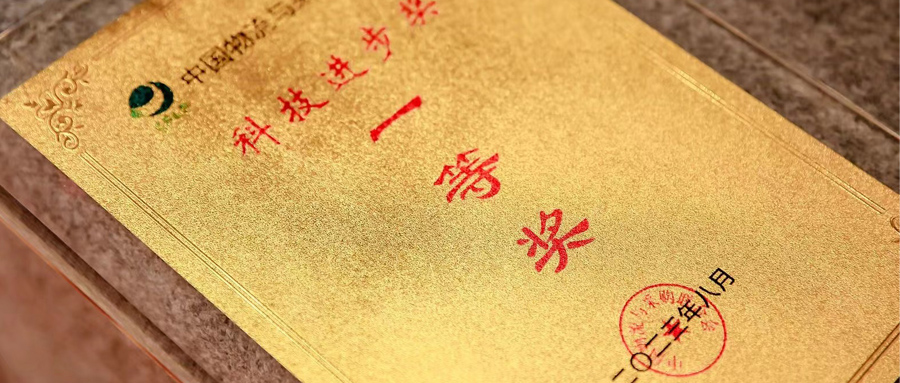 中国物流与
科技进步奖
一等奖
二〇二三年八月
中国物流与采购联合会